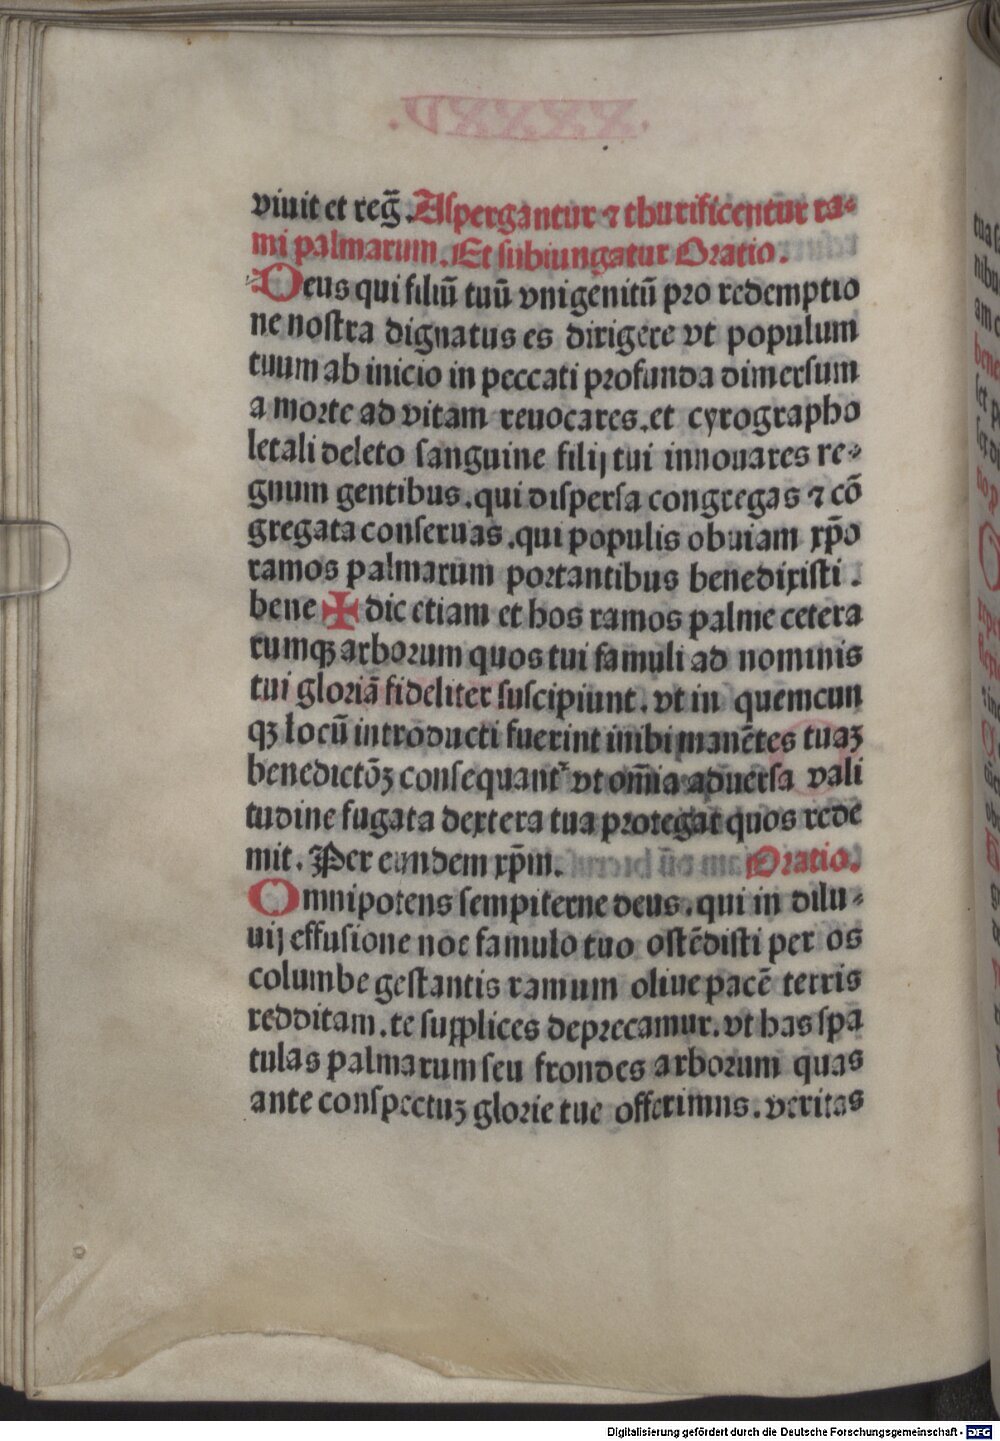 viuit et reg̃. Aspergantur ⁊ thurificentur ra⸗
mi palmarum. Et subiungatur Oratio.
Deus qui filiū tuū vnigenitū pro redemptio
ne nostra dignatus es dirigere vt populum
tuum ab inicio in peccati profunda dimersum
a morte ad vitam reuocares. et cyrographo
letali deleto sanguine filij tui innouares re⸗
gnum gentibus. qui dispersa congregas ⁊ cō
gregata conseruas. qui populis obuiam xp̄o
ramos palmarum portantibus benedixisti.
bene ✠ dic etiam et hos ramos palme cetera
rumqꝫ arborum quos tui famuli ad nominis
tui gloriā fideliter suscipiunt. vt in quemcun
qꝫ locū introducti fuerint inibi manētes tuaꝫ
benedictōꝫ consequant᷑ vt om̄ia aduersa vali
tudine fugata dextera tua protegat quos rede
mit. Per eundem xp̄m. Oratio.
Omnipotens sempiterne deus. qui in dilu⸗
uij effusione noe famulo tuo ostēdisti per os
columbe gestantis ramum oliue pacē terris
redditam. te supplices deprecamur. vt has spa
tulas palmarum seu frondes arborum quas
ante conspectuꝫ glorie tue offerimus. veritas
Digitalisierung gefördert durch die Deutsche Forschungsgemeinschaft - DFG